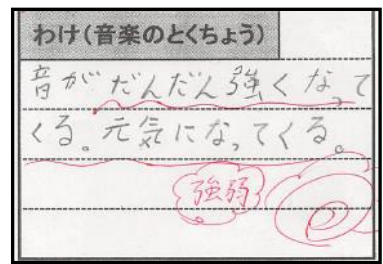 わけ(音楽のとくちょう)
音がだんだん強くなって
くる。元気になってくる。
強弱